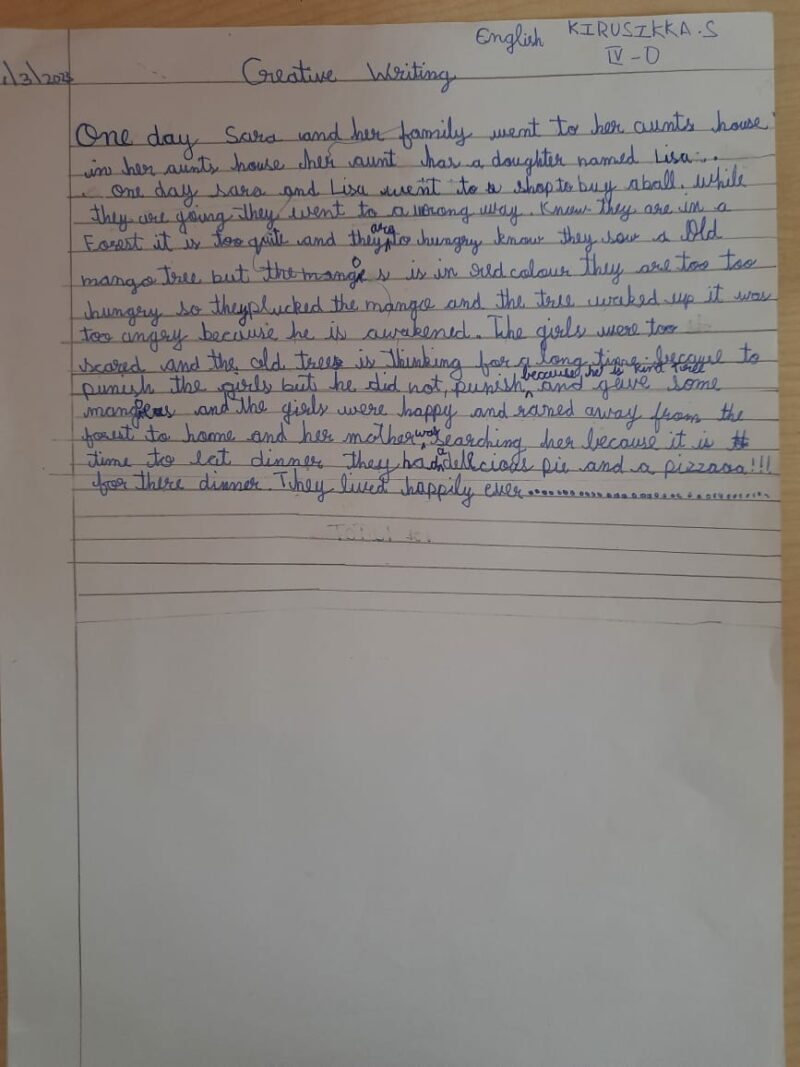 English KIRUSIKKA.S
IV-D
/3/2023
Creative Writing
One day Sara and her family went to her aunts house
in her aunts house her aunt has a doughter named Lisa...
. One day Sara and Lisa went to a shop to buy a ball. While
they are going they went to a wrong way. Know they are in a
Forest it is too quite and they are to hungry know they saw a Old
mango tree but the mangos is in red colour they are too too
hungry so they plucked the mango and the tree waked up it was
too angry because he is awakened. The girls were too
scared and the old tree is thinking for a long time because to
punish the girls but he did not, punish because he is kind tree and gave some
and the girls were happy and raned away from the
forest to home and her mother was searching her because it is
time to eat dinner they had a delicious pie and a pizzaaa!!!
for there dinner. They lived happily ever..............................